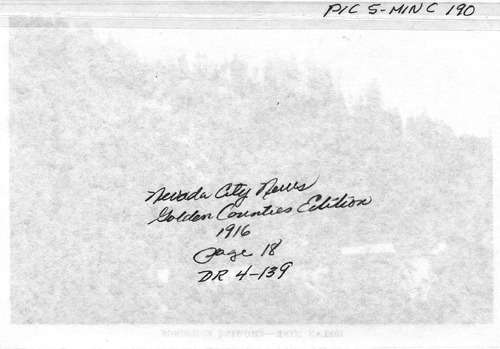 PIC 5-MIN C 190
Nevada City News
Golden Counties Edition
1916
page 18
DR 4-139